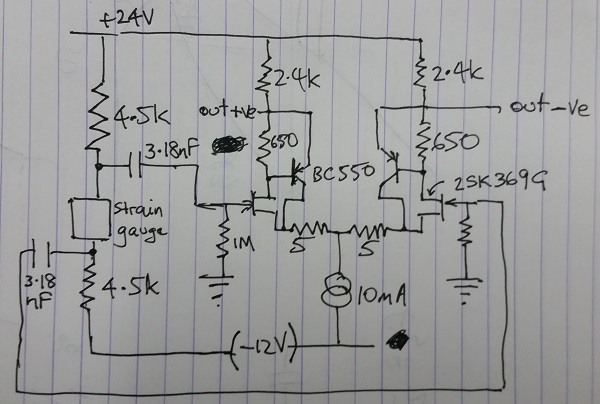 +24V
2.4k
2.4k
4.5k
out+ve
out-ve
3.18nF
650
650
BC550
2SK369G
strain
gauge
1M
5
5
3.18
nF
4.5k
10mA
(-12V)